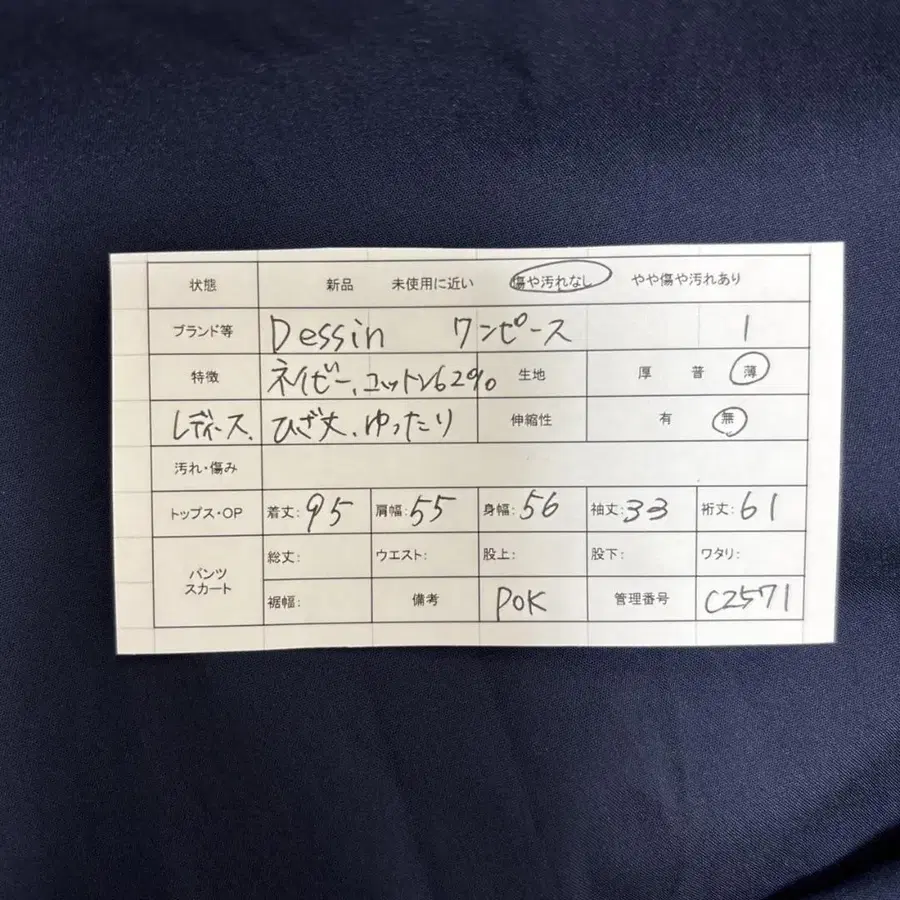 状態 新品 未使用に近い 傷や汚れなし やや傷や汚れあり
ブランド等 Dessin ワンピース 1
特徴 ネイビー、コットン62% 生地 厚 普 薄
レディース、ひざ丈、ゆったり 伸縮性 有 無
汚れ・傷み
トップス・OP 着丈:95 肩幅:55 身幅:56 袖丈:33 裄丈:61
パンツ スカート 総丈: ウエスト: 股上: 股下: ワタリ:
裾幅: 備考 POK 管理番号 C2571